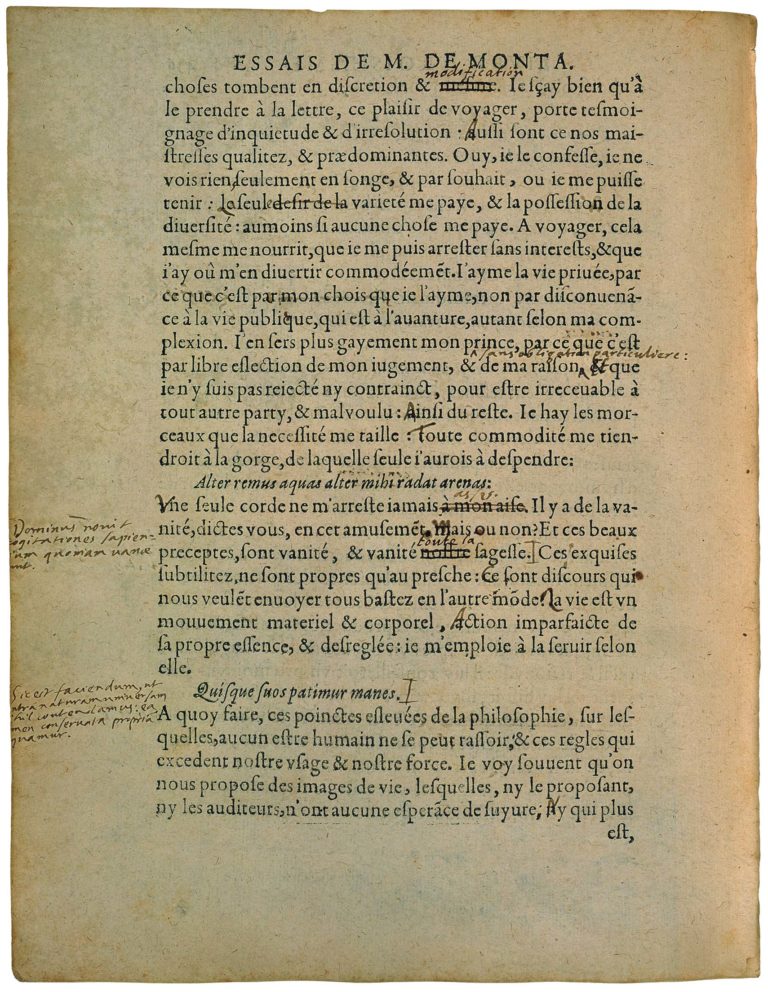 ESSAIS DE M. DE MONTA.
modification
choſes tombent en diſcretion & meſure. Ie ſçay bien qu'à
le prendre à la lettre, ce plaiſir de voyager, porte teſmoi-
gnage d'inquietude & d'irreſolution : Auſſi ſont ce nos mai-
ſtreſſes qualitez, & prædominantes. Ouy, ie le confeſſe, ie ne
vois rien, ſeulement en ſonge, & par ſouhait, ou ie me puiſſe
tenir : La ſeule deſir de la varieté me paye, & la poſſeſsion de la
diuerſité : aumoins ſi aucune choſe me paye. A voyager, cela
meſme me nourrit, que ie me puis arreſter ſans intereſts, & que
i'ay où m'en diuertir commodéemẽt. I'ayme la vie priuée, par
ce que c'eſt par mon chois que ie l'ayme, non par diſconuenã-
ce à la vie publique, qui eſt à l'auanture, autant ſelon ma com-
plexion. I'en ſers plus gayement mon prince, par ce que c'eſt
sans obligation particuliere :
par libre eſlection de mon iugement, & de ma raiſon, & que
ie n'y ſuis pas reiecté ny contrainct, pour eſtre irreceuable à
tout autre party, & malvoulu : Ainſi du reſte. Ie hay les mor-
ceaux que la neceſſité me taille : Toute commodité me tien-
droit à la gorge, de laquelle ſeule i'aurois à deſpendre :
Alter remus aquas alter mihi radat arenas :
Vne ſeule corde ne m'arreſte iamais à mon aiſe. Il y a de la va-
Dominus nouit
nité, dictes vous, en cet amuſemẽt. Mais ou non? Et ces beaux
cogitationes sapien-
toute la
preceptes, ſont vanité, & vanité noſtre ſageſſe. Ces exquiſes
tium quoniam vanæ
ſubtilitez, ne ſont propres qu'au preſche : Ce ſont diſcours qui
sunt.
nous veulẽt enuoyer tous baſtez en l'autre mõde. La vie eſt vn
mouuement materiel & corporel, Action imparfaicte de
ſa propre eſſence, & deſreglée : ie m'emploie à la ſeruir ſelon
elle.
Quiſque ſuos patimur manes.
Sic est faciendum, ut
A quoy faire, ces poinctes eſleuées de la philoſophie, ſur leſ-
quelles, aucun eſtre humain ne ſe peut raſſoir, & ces regles qui
excedent noſtre vſage & noſtre force. Ie voy ſouuent qu'on
nous propoſe des images de vie, leſquelles, ny le propoſant,
ny les auditeurs, n'ont aucune eſperãce de ſuyure, Ny qui plus
eſt,